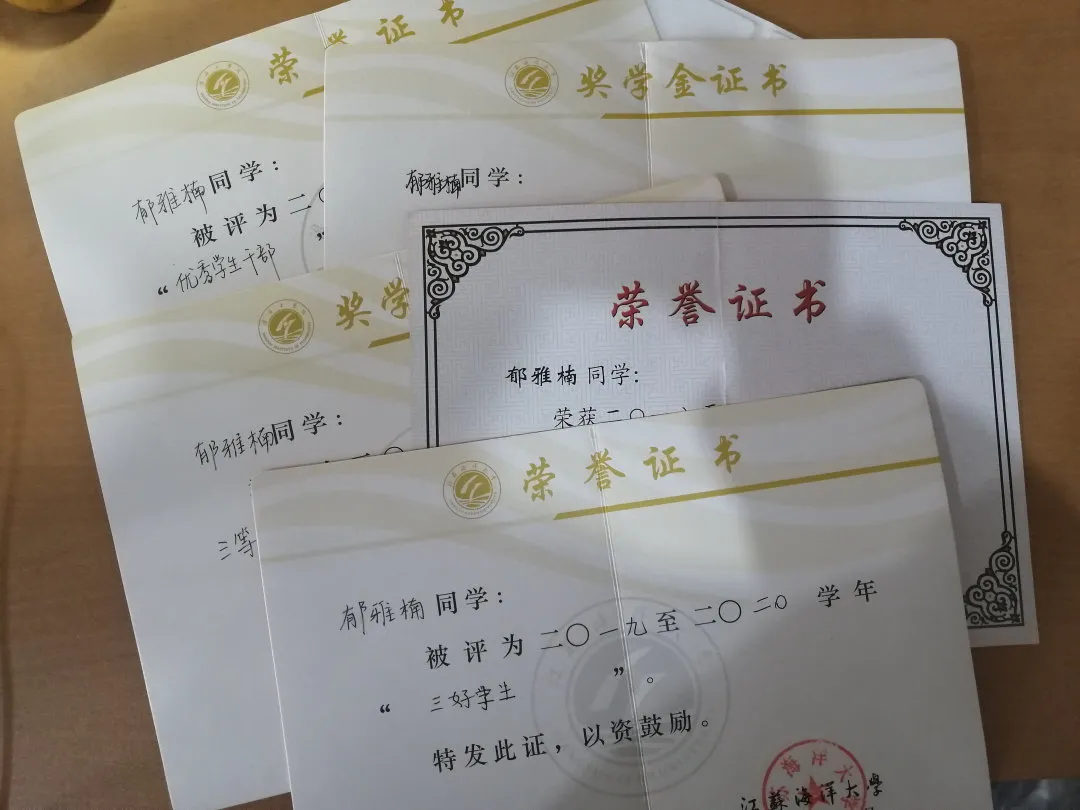 荣誉证书
郁雅楠同学:
被评为二〇
“优秀学生干部
”
奖学金证书
郁雅楠同学:
奖学
郁雅楠同学:
三等
荣誉证书
郁雅楠同学:
荣获二〇一
荣誉证书
郁雅楠同学:
被评为二〇一九至二〇二〇学年
“三好学生”。
特发此证,以资鼓励。
江苏海洋大学